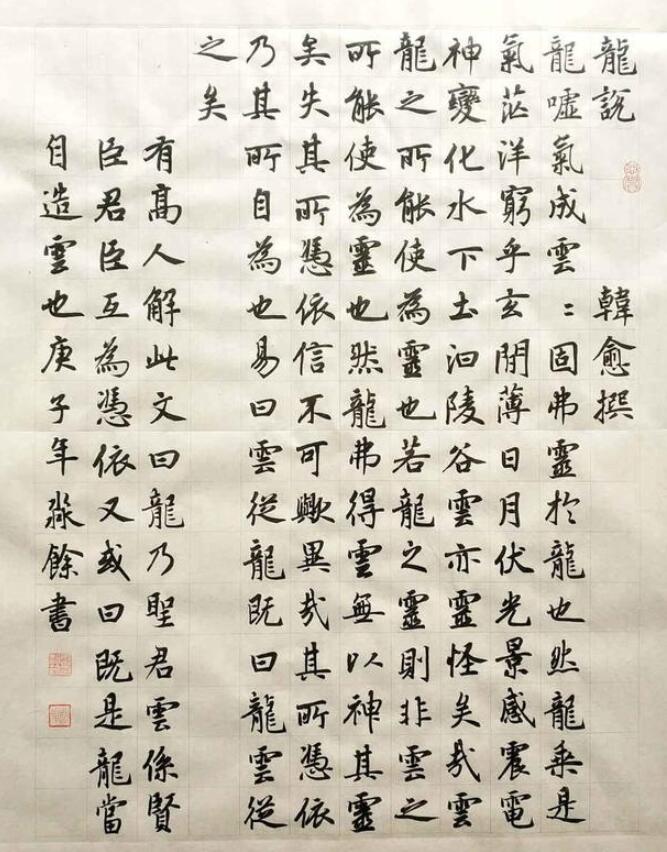 龍說 韓愈撰
龍噓氣成雲〻固弗靈於龍也然龍乘是
氣茫洋窮乎玄間薄日月伏光景感震電
神變化水下土汩陵谷雲亦靈怪矣哉雲
龍之所能使為靈也若龍之靈則非雲之
所能使為靈也然龍弗得雲無以神其靈
矣失其所憑依信不可歟異哉其所憑依
乃其所自為也易曰雲從龍既曰龍雲從
之矣
有高人解此文曰龍乃聖君雲係賢
臣君臣互為憑依又或曰既是龍當
自造雲也庚子年餘書